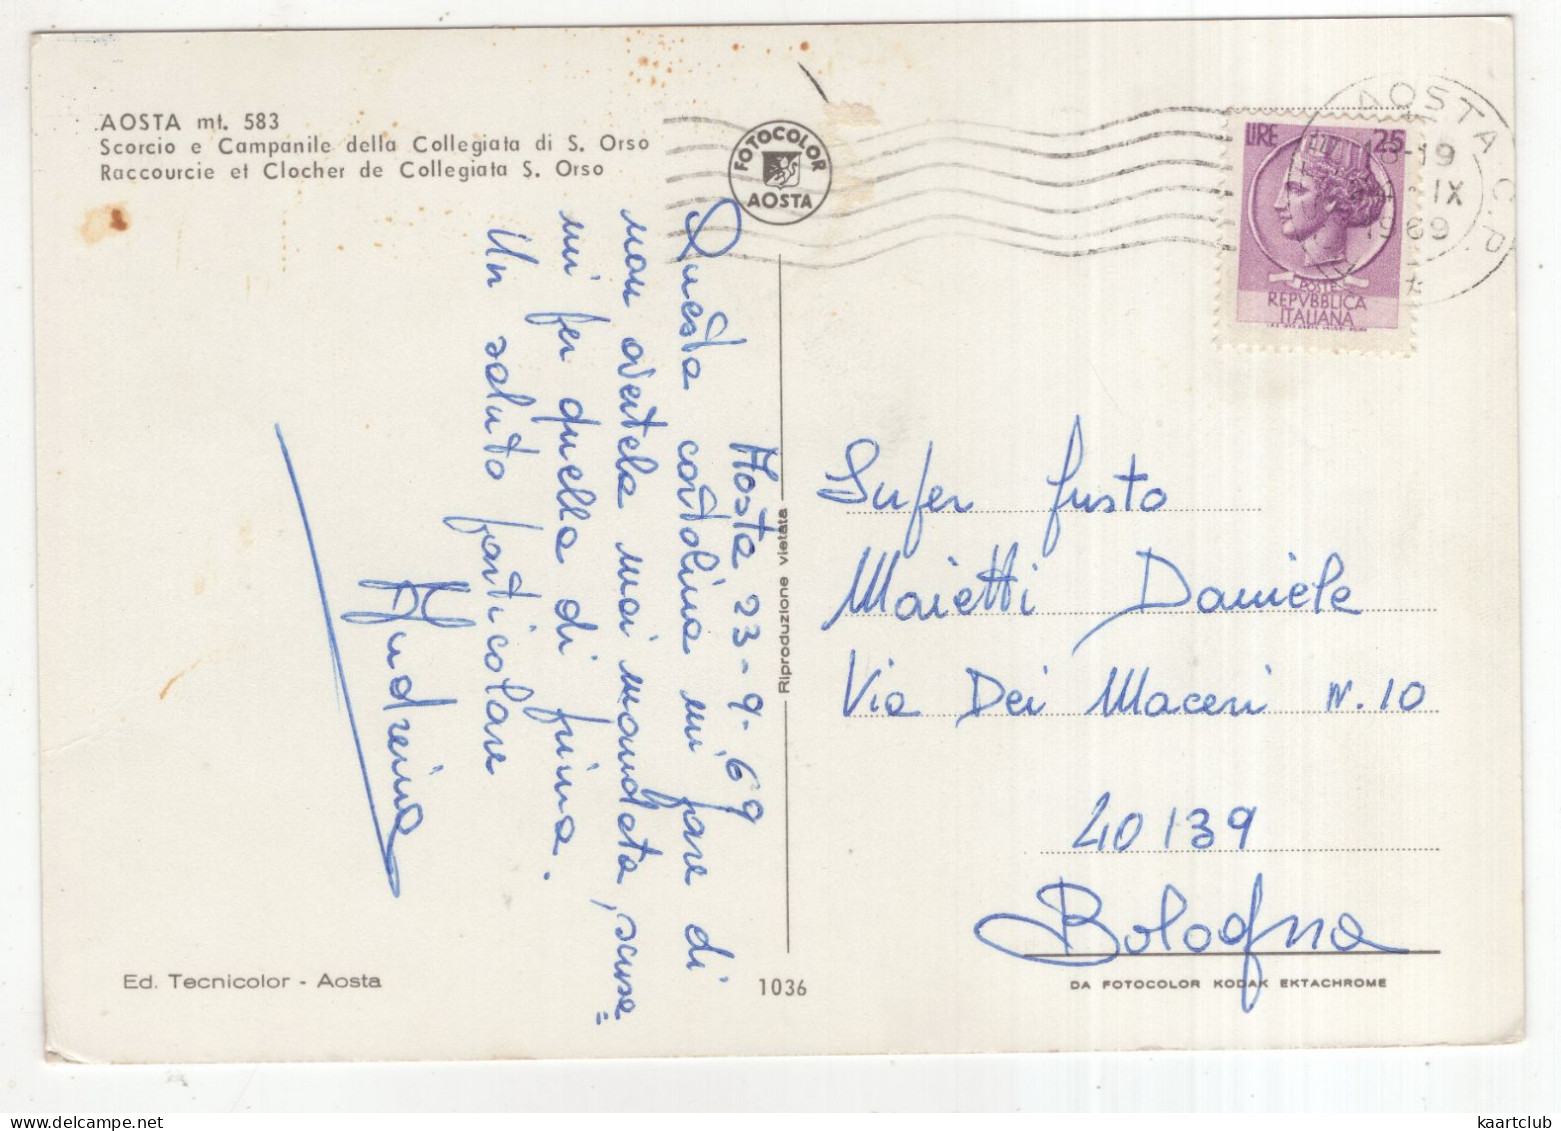 AOSTA mt. 583
Scorcio e Campanile della Collegiata di S. Orso
Raccourcie et Clocher de Collegiata S. Orso
FOTOCOLOR
AOSTA
AOSTA C.P.
18-19
IX
1969
LIRE 25
POSTE
REPVBBLICA
ITALIANA
Aosta 23-9-69
Questa cartolina mi pare di
non avertela mai mandata, scusa=
mi per quella di prima.
Un saluto particolare
Andreina
Riproduzione vietata
Super fusto
Maietti Daniele
Via Dei Maceri N. 10
40139
Bologna
Ed. Tecnicolor - Aosta
1036
DA FOTOCOLOR KODAK EKTACHROME
kaartclub